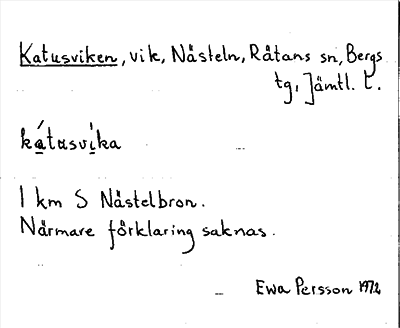 Katusviken, vik, Nästeln, Råtans sn, Bergs
tg, Jämtl. l.
kátusvi̍ka
1 km S Nästelbron.
Närmare förklaring saknas.
Ewa Persson 1972